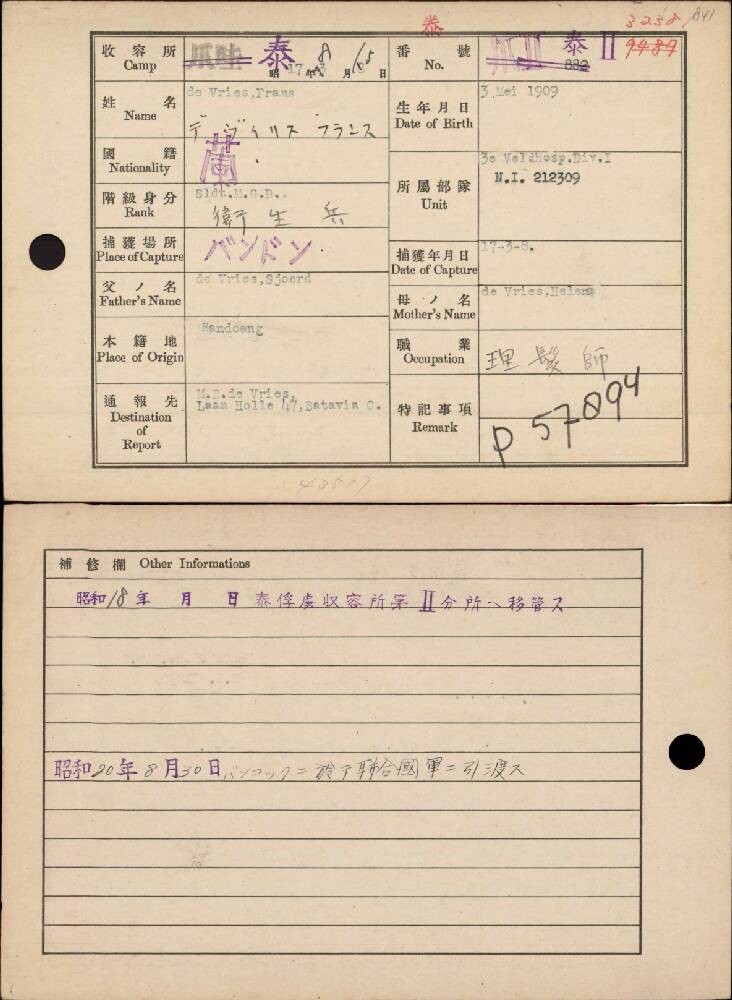 泰 3238 841
収容所 爪哇 泰 昭 17年 8月 15日 番號 泰 II 9489
Camp No. 882
姓名 de Vries,Frans 生年月日 3 Mei 1909
Name デ ヴイリス フランス Date of Birth
國籍 蘭
Nationality 所屬部隊 3e Veldhosp.Div.I
階級身分 Sldt.M.G.D.. Unit N.I. 212309
Rank 衛生兵
捕獲場所 バンドン 捕獲年月日 17-3-8.
Place of Capture Date of Capture
父ノ名 de Vries,Sjoerd 母ノ名 de Vries,Helena
Father's Name Mother's Name
本籍地 Bandoeng 職業 理髮師
Place of Origin Occupation
通報先 M.D.de Vries,
Destination Laan Holle 47,Batavia C. 特記事項 P 57894
of Remark
Report
補修欄 Other Informations
昭和18年 月 日 泰俘虜収容所第II分所ヘ移管ス
昭和20年8月30日バンコックニ於テ聯合國軍ニ引渡ス